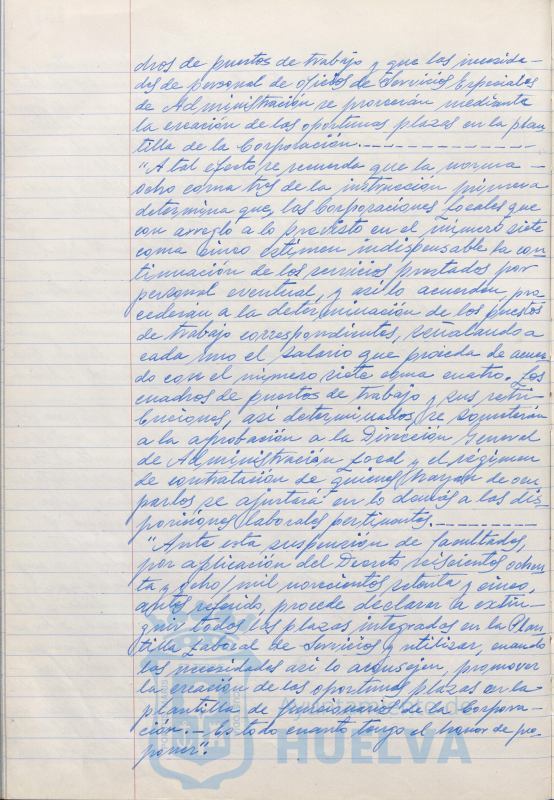 dros de puestos de trabajo y que las necesida-
des de personal de oficios de Servicios Especiales
de Administración se proveerán mediante
la creación de las oportunas plazas en la plan
tilla de la Corporación.
"A tal efecto se recuerda que la norma
ocho coma tres de la instrucción primera
determina que, las Corporaciones Locales que
con arreglo a lo previsto en el número siete
coma cinco estimen indispensable la con
tinuación de los servicios prestados por
personal eventual, y así lo acuerden, pro
cederán a la determinación de los puestos
de trabajo correspondientes, señalando a
cada uno el salario que proceda de acuer
do con el número siete coma cuatro. Los
cuadros de puestos de trabajo y sus retri-
buciones, así determinados, se someterán
a la aprobación a la Dirección General
de Administración Local y el régimen
de contratación de quienes hayan de ocu
parlos se ajustará en lo demás a las dis-
posiciones laborales pertinentes.
"Ante esta suspensión de facultades,
por aplicación del Decreto seiscientos ochen
ta y ocho/mil novecientos setenta y cinco,
antes referido, procede declarar a extin-
guir todas las plazas integradas en la Plan
tilla Laboral de Servicios y utilizar, cuando
las necesidades así lo aconsejen, promover
la creación de las oportunas plazas en la
plantilla de funcionarios de la Corpora-
ción.- Es todo cuanto tengo el honor de pro
poner".
HUELVA